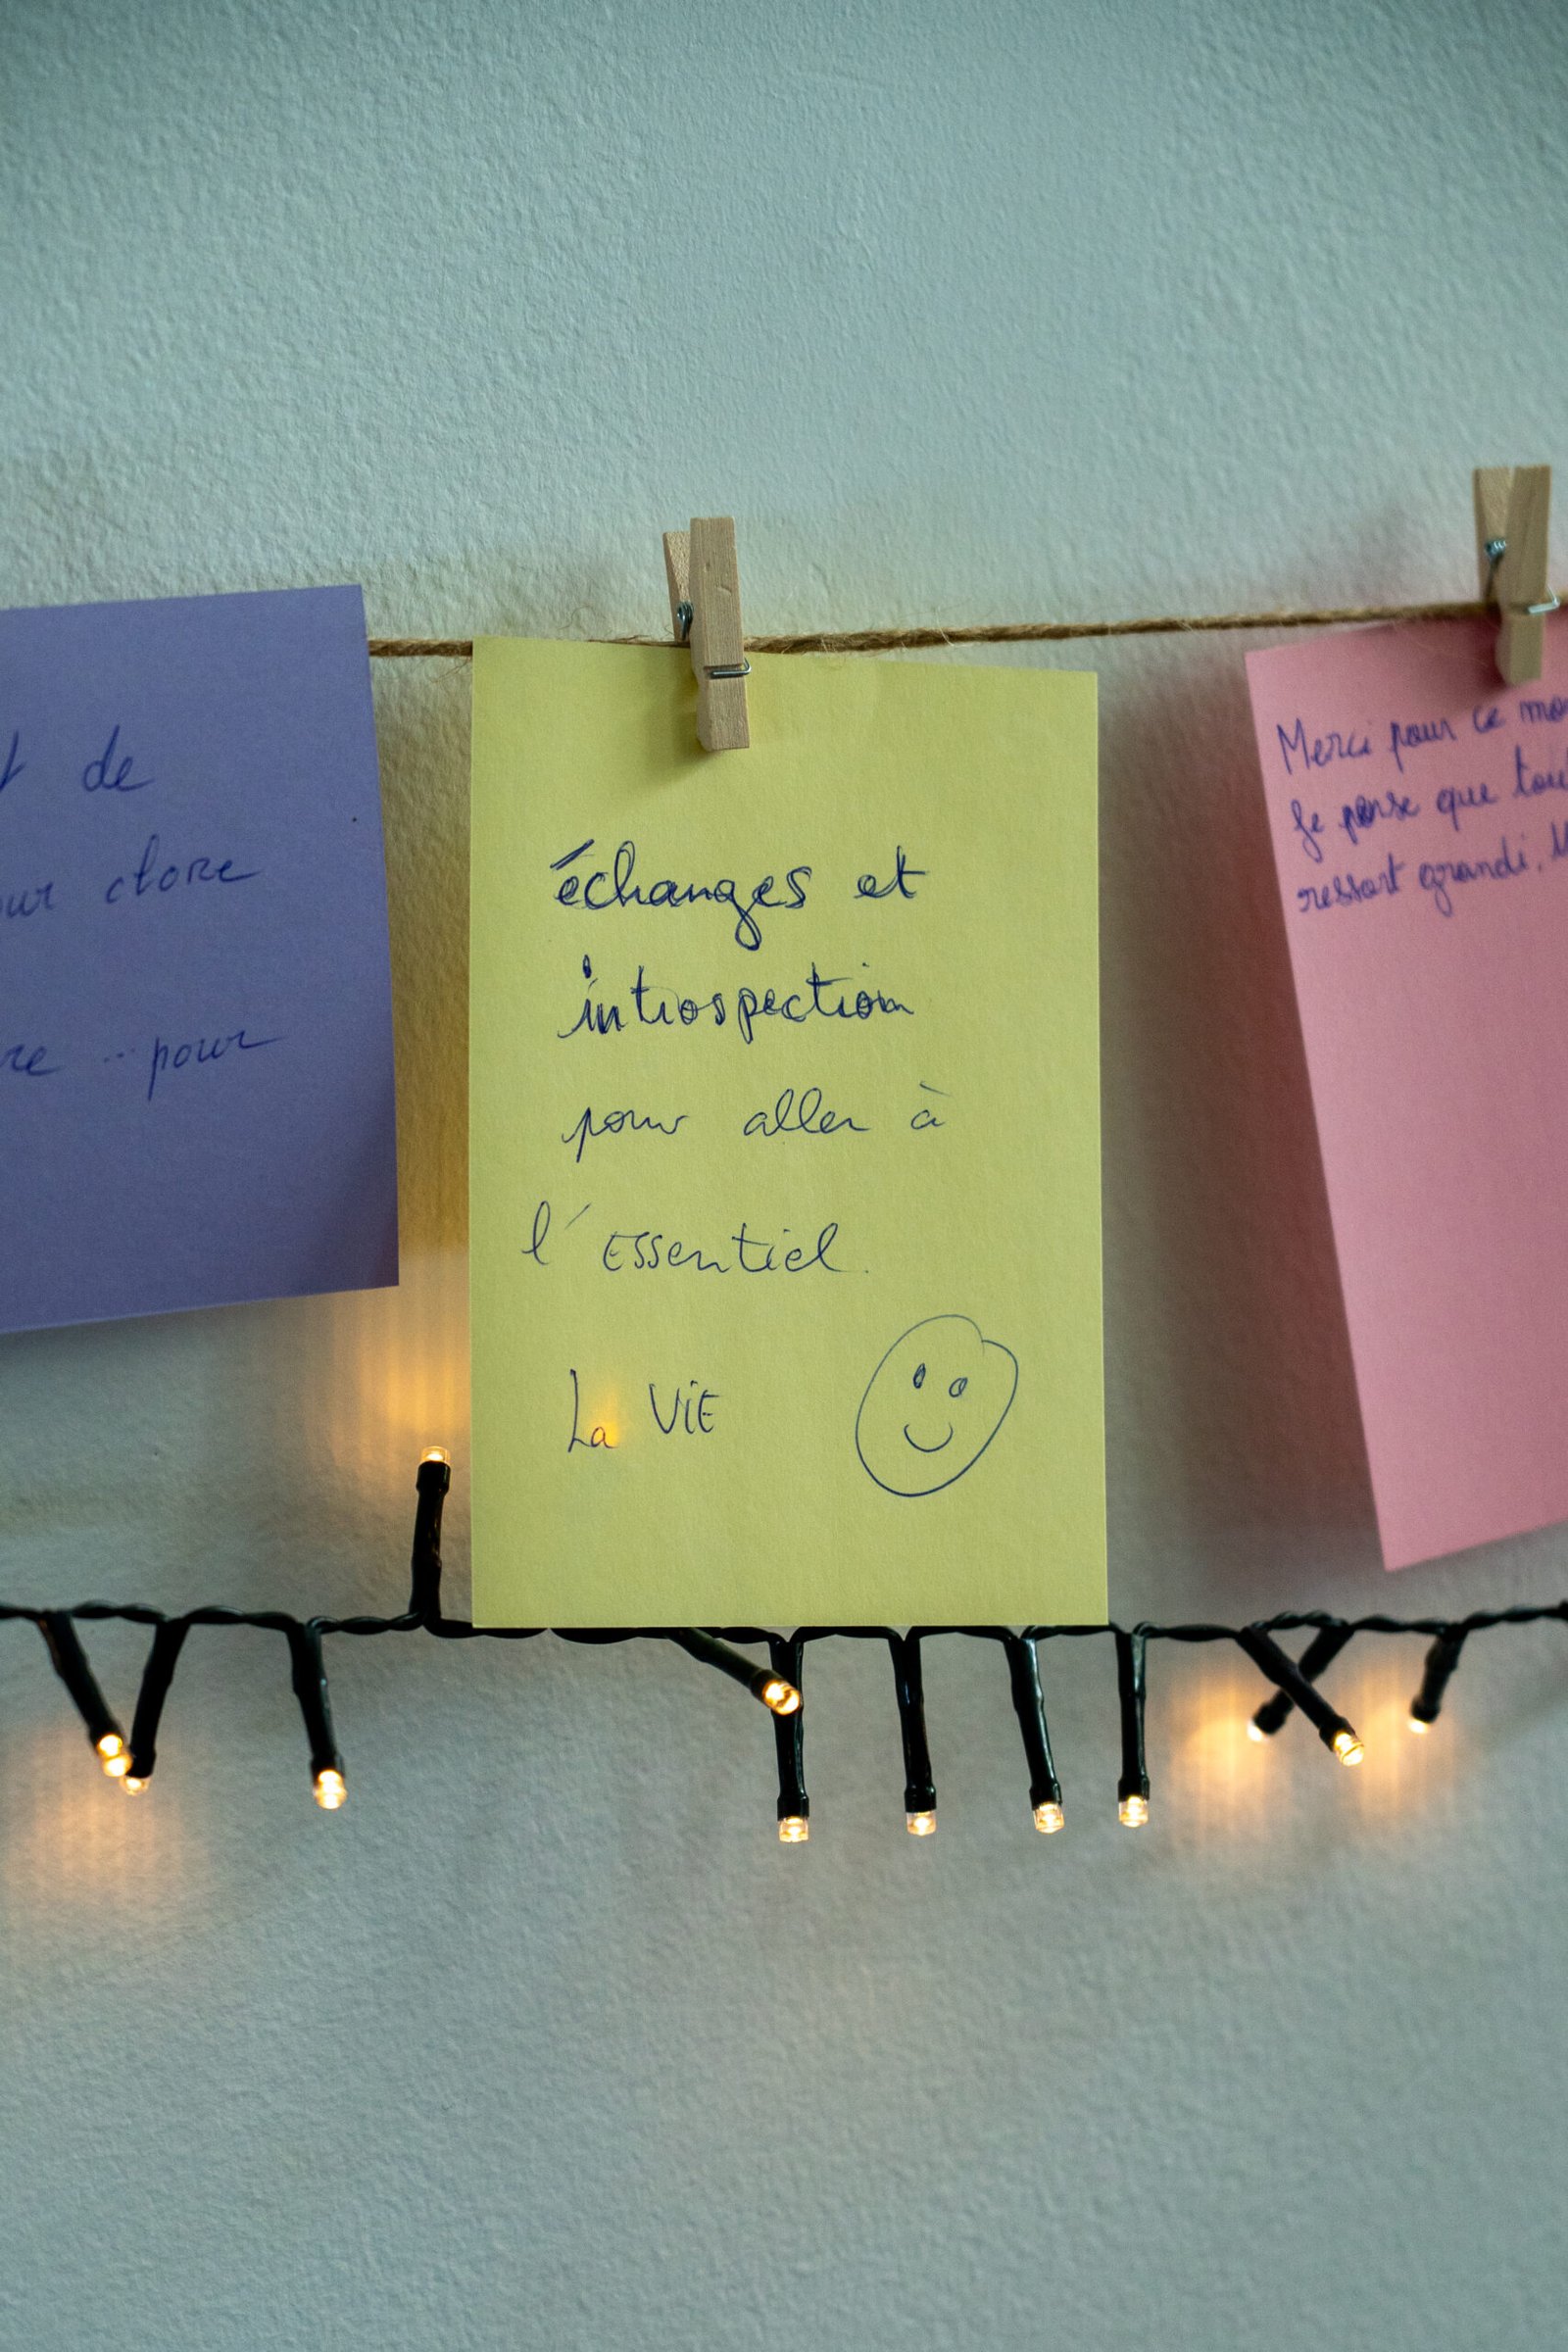 de
clore
pour
échanges et
introspection
pour aller à
l'Essentiel.
La ViE
Merci pour ce
Je pense que
ressort grandi.